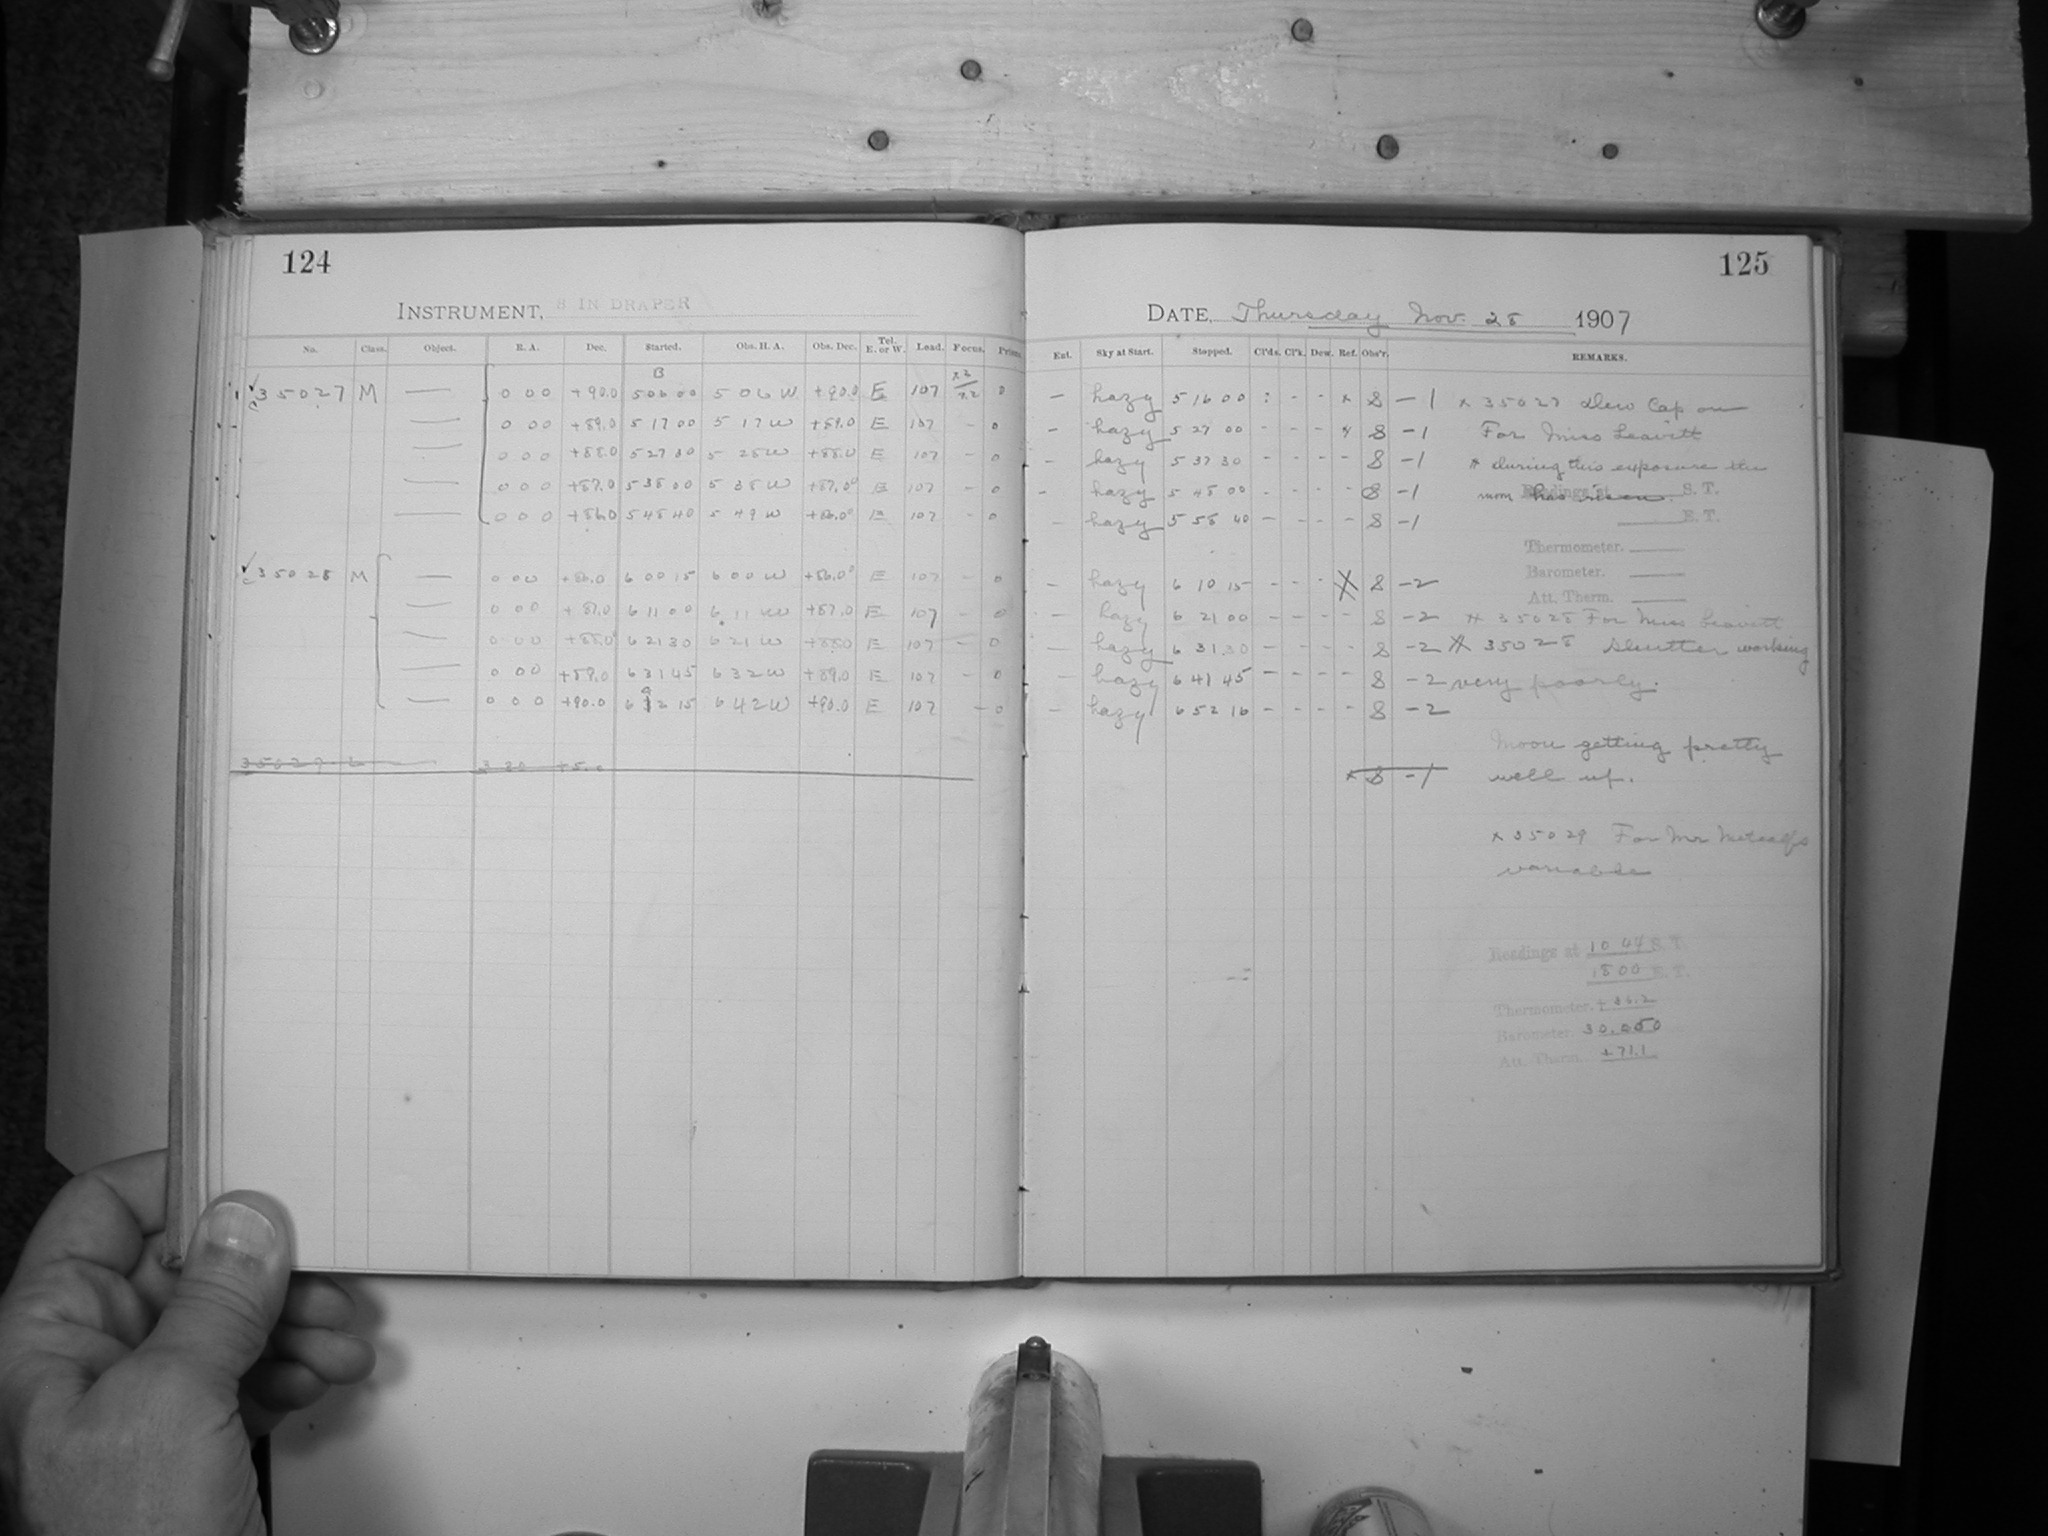 124
INSTRUMENT, 8 IN DRAPER
No. Class. Object. R. A. Dec. Started. Obs. H. A. Obs. Dec. Tel. E. or W. Load. Focus. Prism.
B
35027 M — 0 0 0 +90.0 5 06 00 5 06 W +90.0 E 107 0
— 0 0 0 +89.0 5 17 00 5 17 W +89.0 E 107 - 0
— 0 0 0 +88.0 5 27 30 5 28 W +88.0 E 107 - 0
— 0 0 0 +87.0 5 38 00 5 38 W +87.0° E 107 - 0
— 0 0 0 +86.0 5 48 40 5 49 W +86.0° E 107 - 0
35028 M — 0 0 0 +86.0 6 00 15 6 00 W +86.0° E 107 - 0
— 0 0 0 +87.0 6 11 00 6 11 W +87.0 E 107 - 0
— 0 0 0 +88.0 6 21 30 6 21 W +88.0 E 107 - 0
— 0 0 0 +89.0 6 31 45 6 32 W +89.0 E 107 - 0
— 0 0 0 +90.0 6 42 15 6 42 W +90.0 E 107 - 0
35029 L — 3 20 +5.0
125
DATE, Thursday Nov. 28 1907
Ext. Sky at Start. Stopped. Cl'ds. Cl'k. Dew. Ref. Obs'r. REMARKS.
— hazy 5 16 00 : - - x S -1 x 35027 Dew Cap on
— hazy 5 27 00 - - - x S -1 For Miss Leavitt
— hazy 5 37 30 - - - - S -1 * during this exposure the
- hazy 5 48 00 - - - - S -1 moon has risen.
Readings at S. T.
— hazy 5 58 40 - - - - S -1
E. T.
Thermometer.
Barometer.
Att. Therm.
— hazy 6 10 15 - - - X S -2
— hazy 6 21 00 - - - - S -2 * 35028 For Miss Leavitt
— hazy 6 31 30 - - - - S -2 * 35028 Shutter working
— hazy 6 41 45 - - - - S -2 very poorly.
— hazy 6 52 16 - - - - S -2
Moon getting pretty
x S -1 well up.
x 35029 For Mr Metcalfs
variable
Readings at 10 44 S. T.
18 00 E. T.
Thermometer. +36.2
Barometer. 30.050
Att. Therm. +71.1